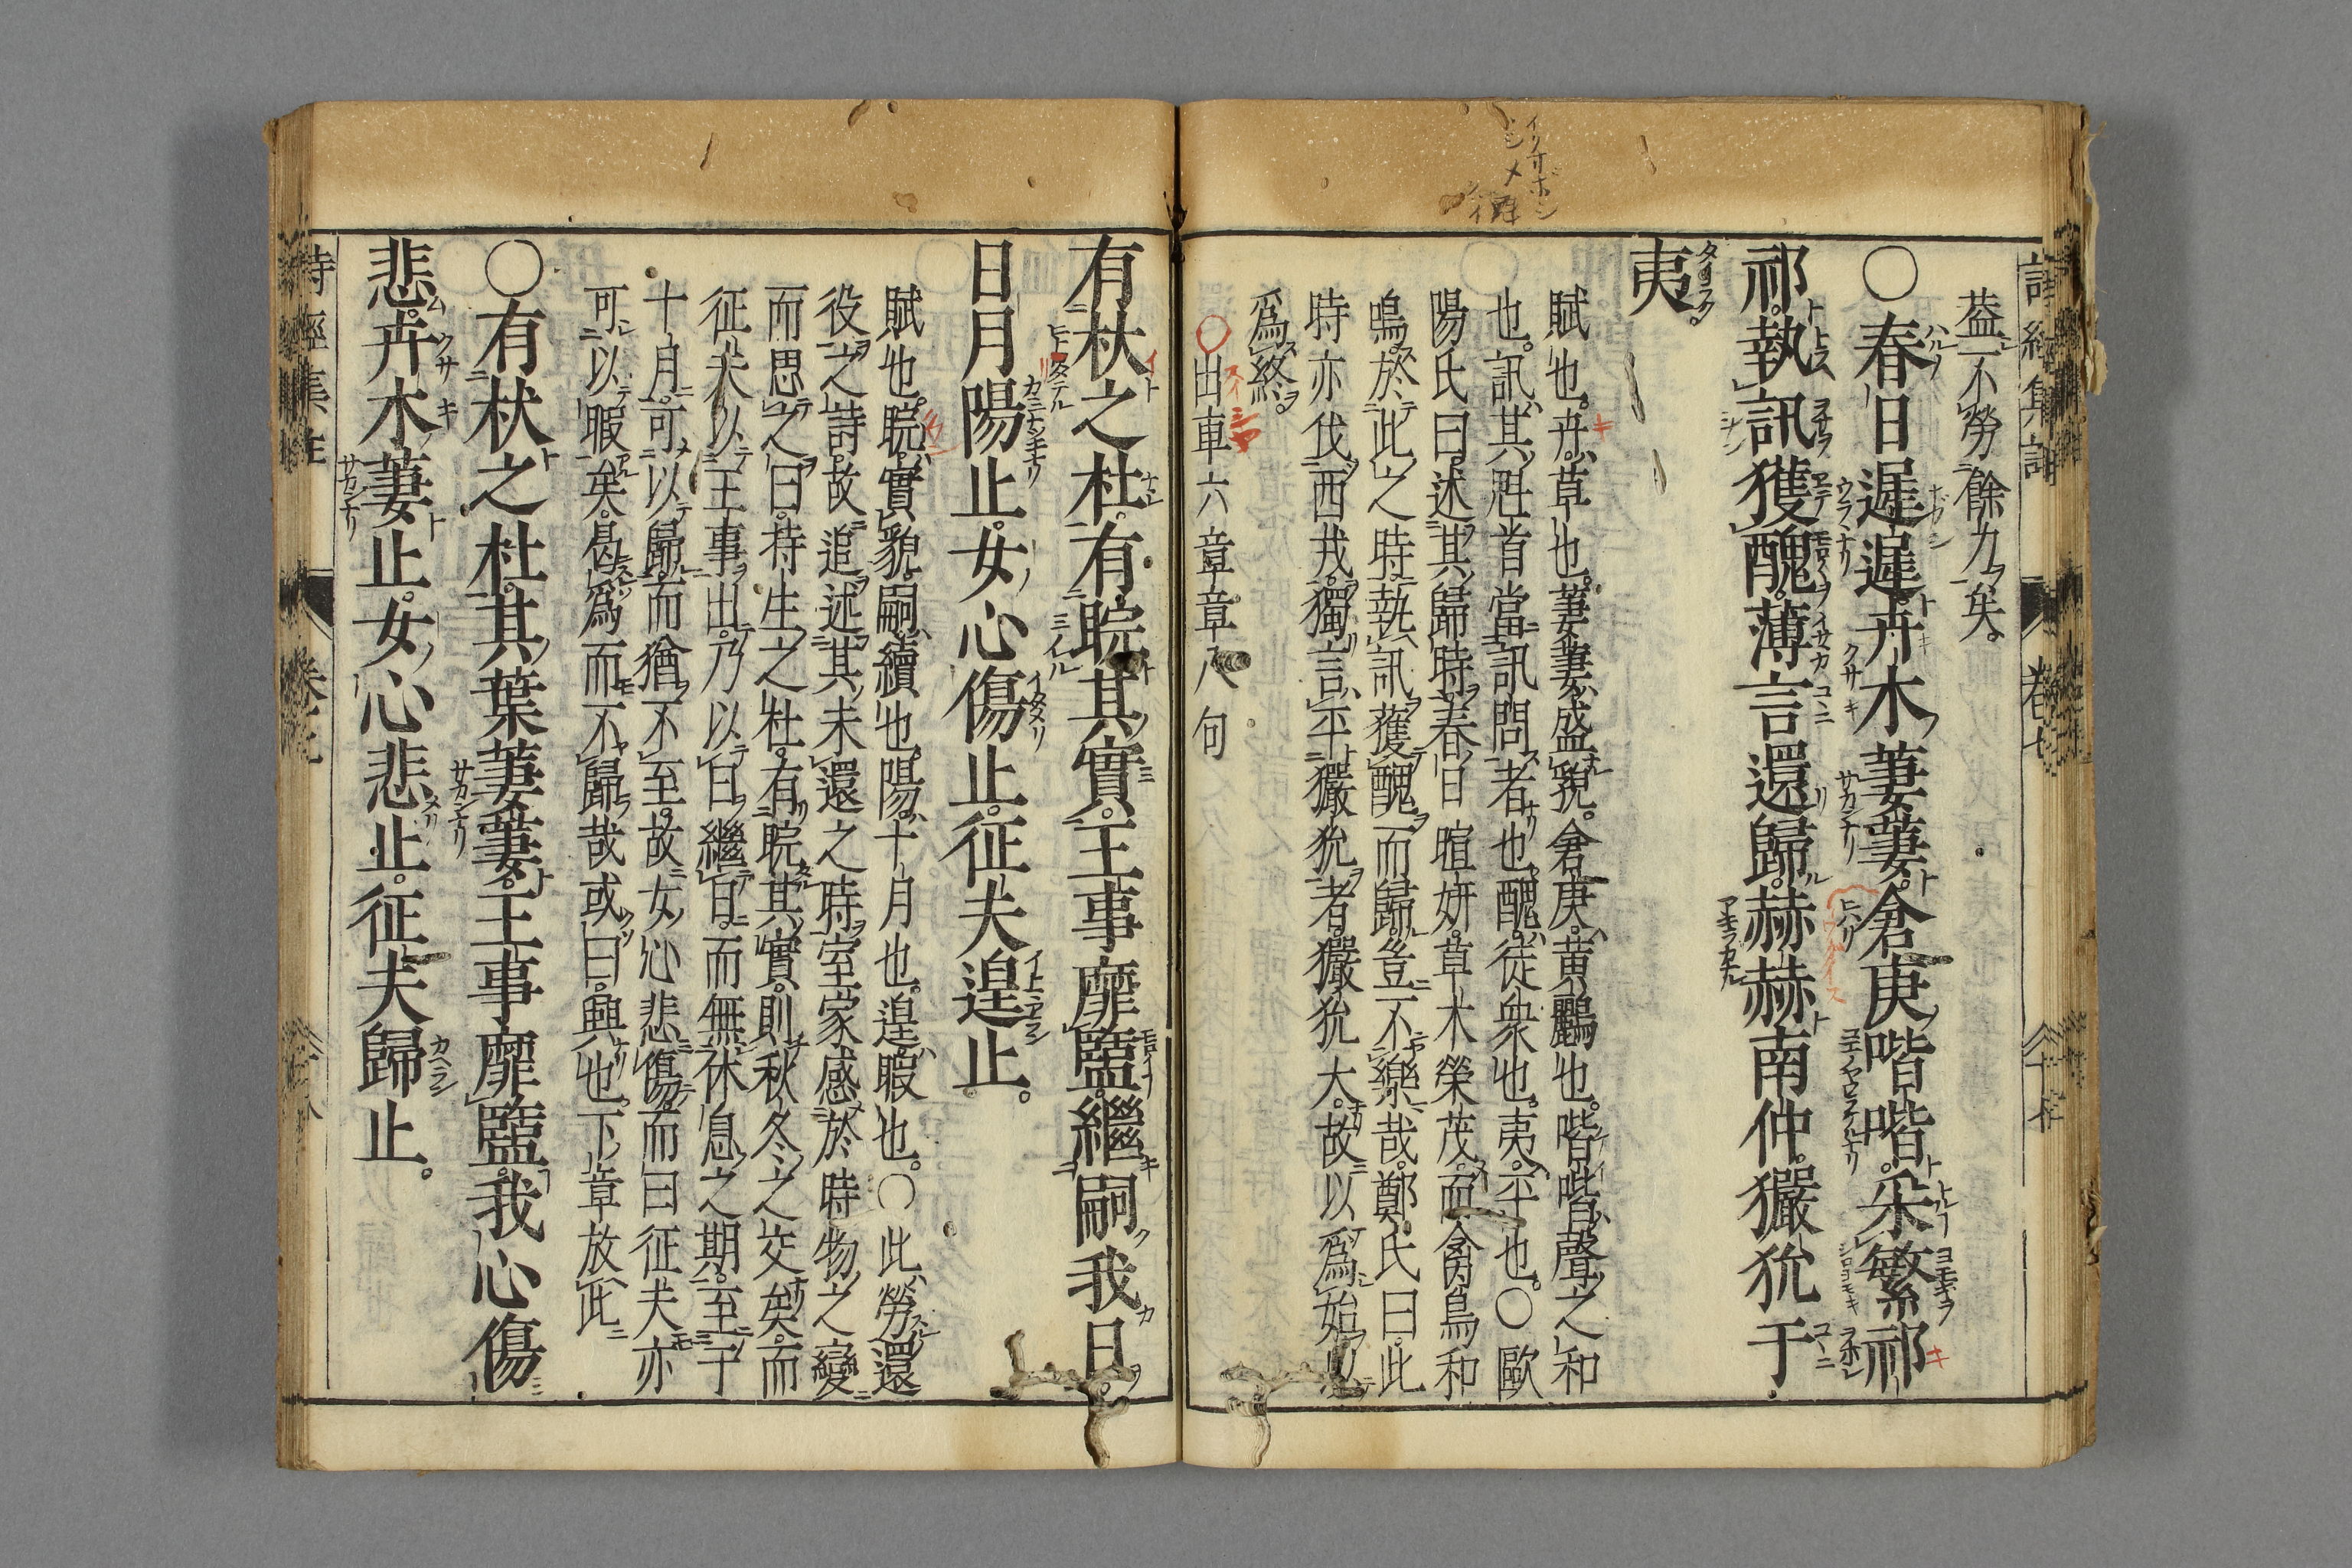 蓋不勞餘力矣。
○春日遲遲。卉木萋萋。倉庚喈喈。采蘩祁
祁。執訊獲醜。薄言還歸。赫赫南仲。玁狁于
夷。
賦也。卉。草也。萋萋。盛貌。倉庚。黃鸝也。喈喈。聲之和
也。訊。其魁首當訊問者也。醜。徒衆也。夷。平也。○歐
陽氏曰。述其歸時。春日暄妍。草木榮茂。而禽鳥和
鳴。於此之時。執訊獲醜而歸。豈不樂哉。鄭氏曰。此
時亦伐西戎。獨言平玁狁者。玁狁大。故以爲始以
爲終。
○出車六章章八句
有杕之杜。有睆其實。王事靡盬。繼嗣我日。
日月陽止。女心傷止。征夫遑止。
賦也。睆。實貌。嗣。續也。陽。十月也。遑。暇也。○此勞還
役之詩。故追述其未還之時。室家感於時物之變
而思之曰。特生之杜。有睆其實。則秋冬之交矣。而
征夫以王事出。乃以日繼日。而無休息之期。至于
十月。可以歸。而猶不至。故女心悲傷。而曰征夫亦
可以暇矣。曷爲而不歸哉。或曰。興也。下章放此
○有杕之杜。其葉萋萋。王事靡盬。我心傷
悲。卉木萋止。女心悲止。征夫歸止。